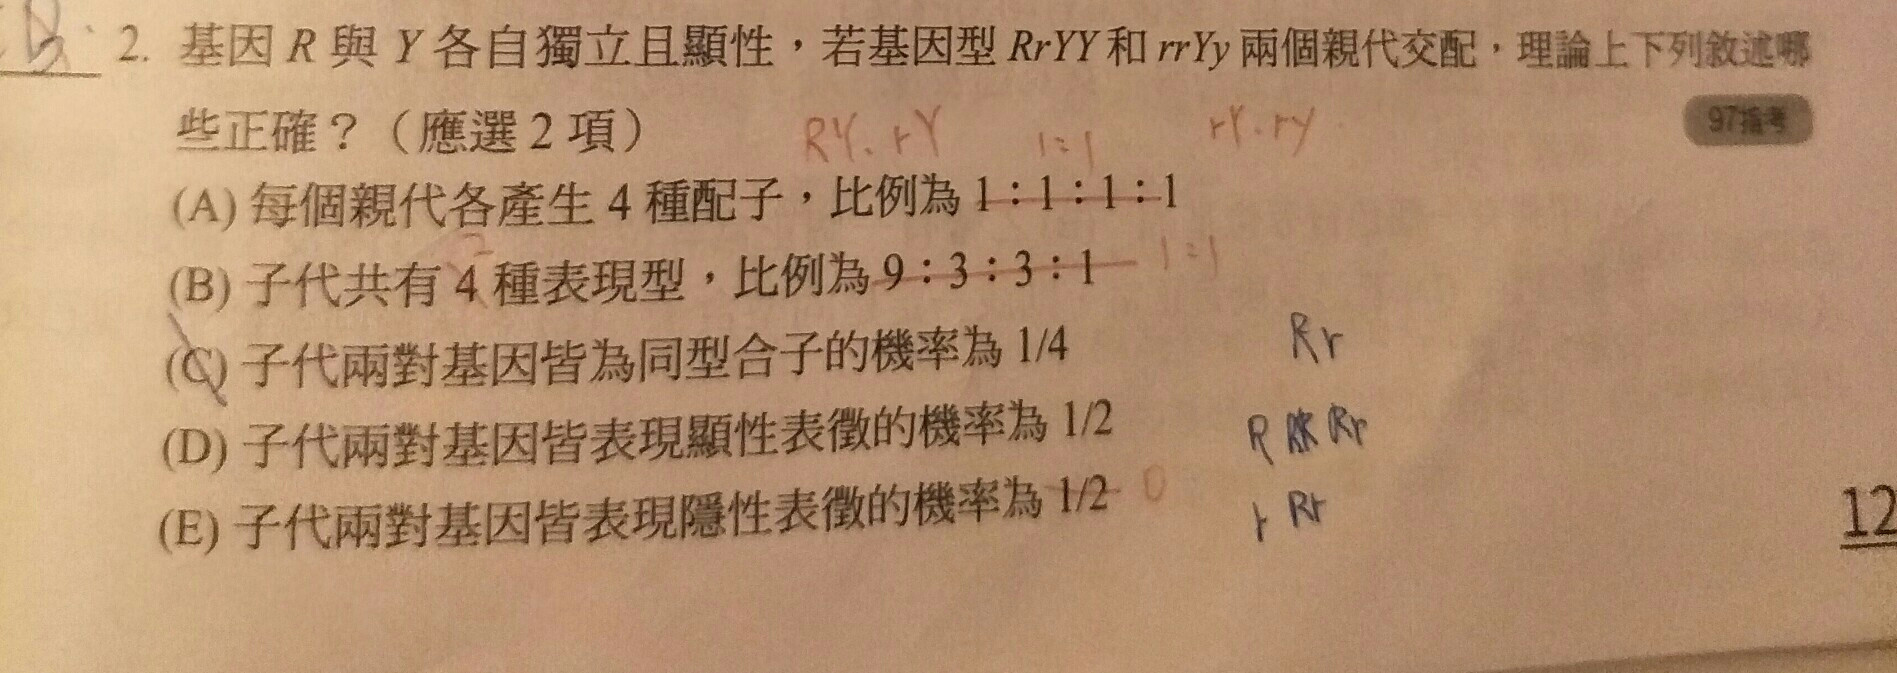 2. 基因 R 與 Y 各自獨立且顯性，若基因型 RrYY 和 rrYy 兩個親代交配，理論上下列敘述哪
些正確？（應選 2 項）
97指考
RY. rY 1:1 rY. ry
(A) 每個親代各產生 4 種配子，比例為 1：1：1：1
2
(B) 子代共有 4 種表現型，比例為 9：3：3：1 1:1
(C) 子代兩對基因皆為同型合子的機率為 1/4 Rr
(D) 子代兩對基因皆表現顯性表徵的機率為 1/2 R Rr
(E) 子代兩對基因皆表現隱性表徵的機率為 1/2 0 r Rr
12